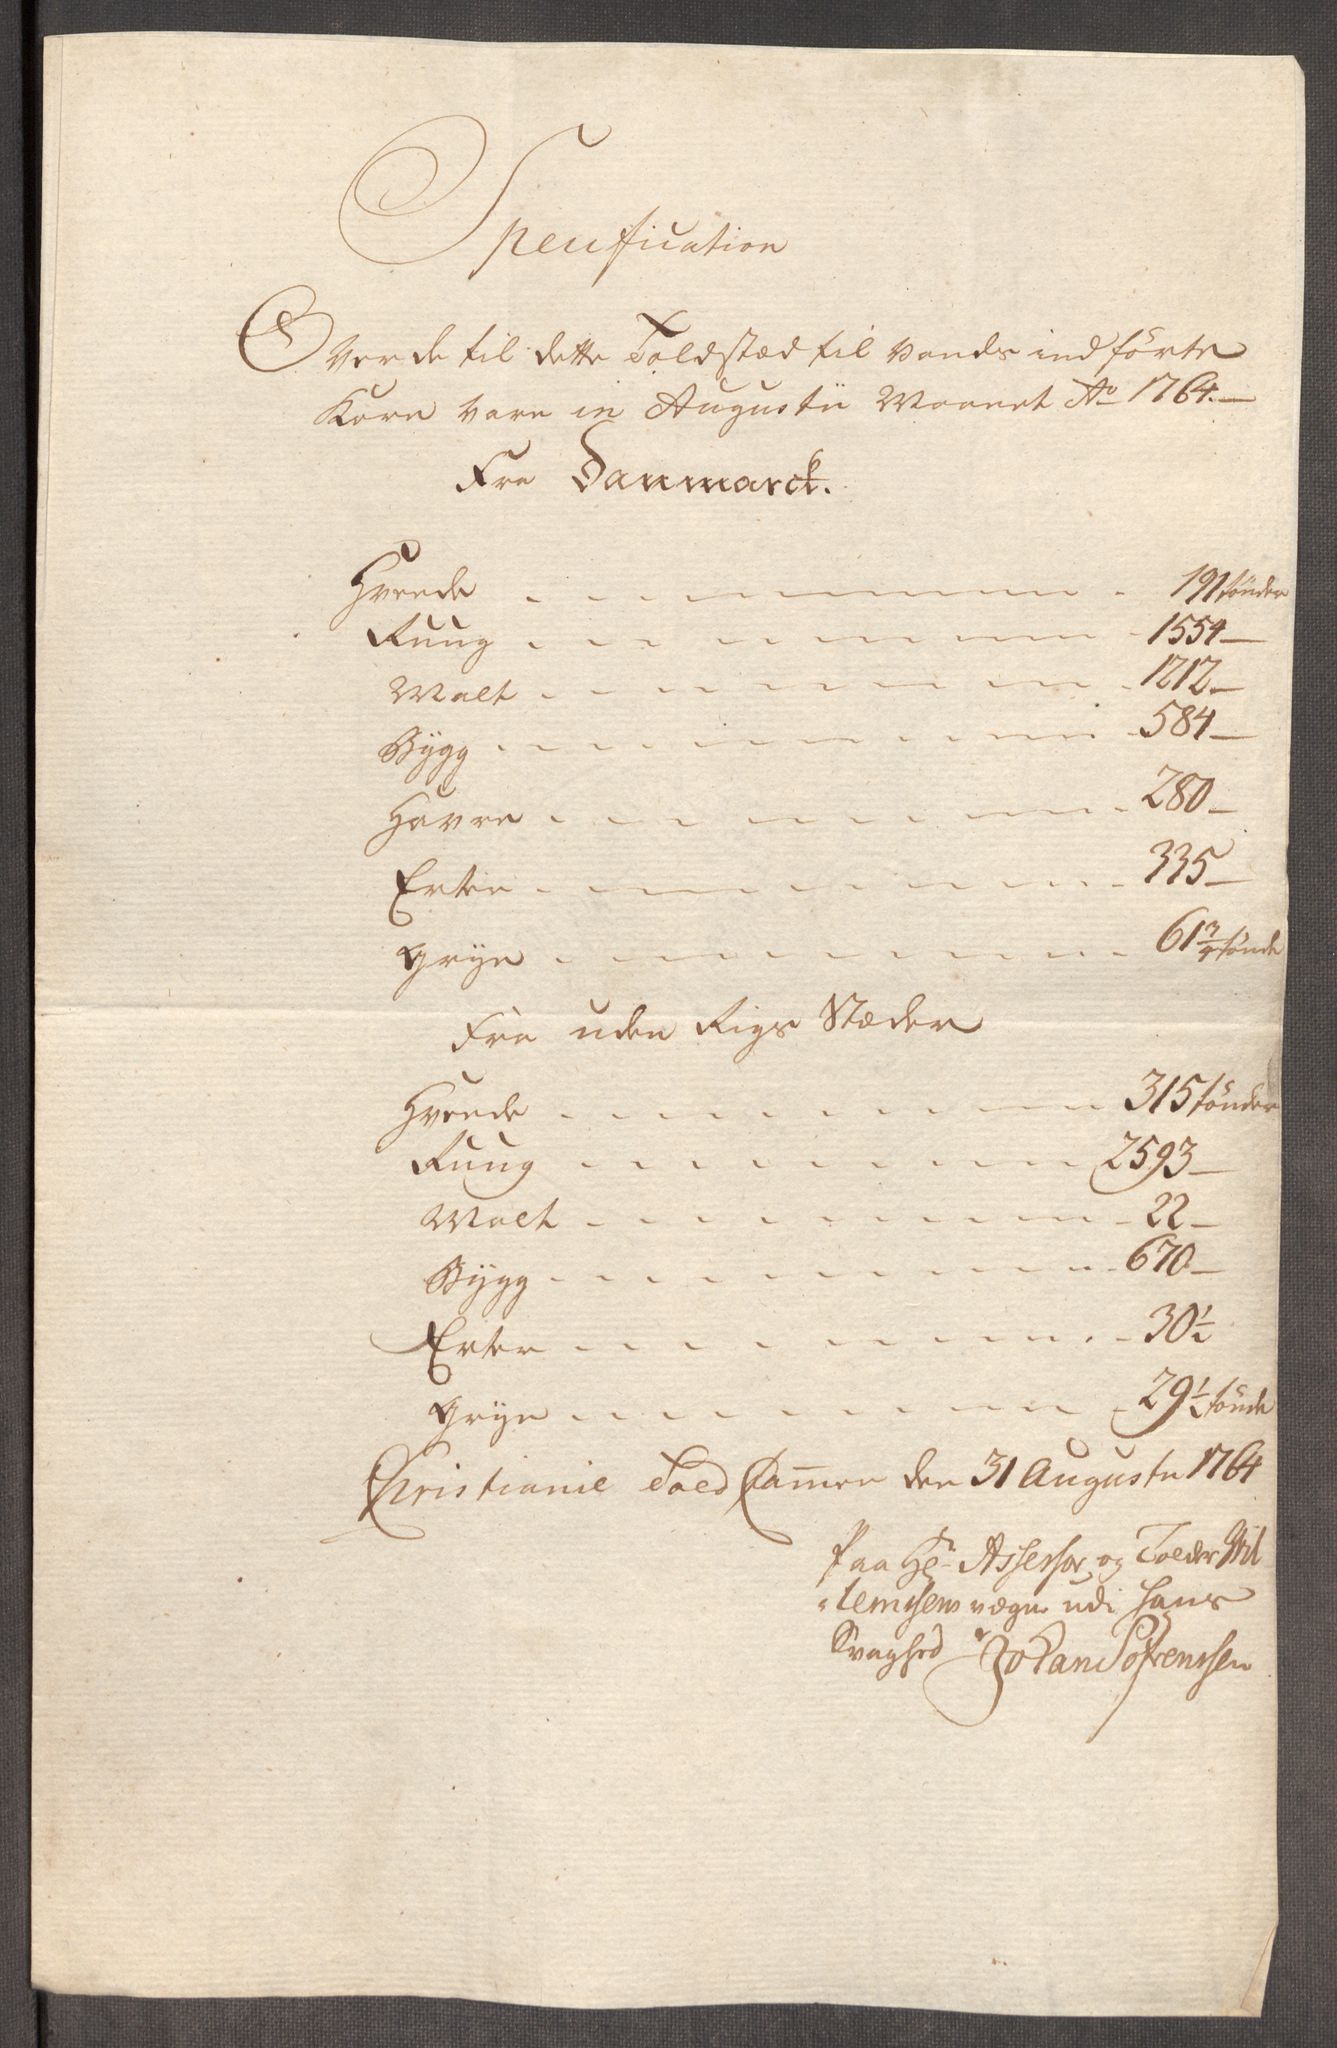 Specification
Over de til dette Toldstæd til Vands indførte
Korn Vare in Augustii Maanet Ao 1764.
Fra Danmarck.
Hveede 191 tönder
Ruug 1554
Malt 1212
Bÿgg 584
Havre 280
Erter 335
Grÿn 61 3/4 tönde
Fra uden Rigs Stæder
Hveede 315 tönder
Ruug 2593
Malt 22
Bÿgg 670
Erter 30 1/2
Grÿn 29 1/2 tönde
Christianie Told Cam̅er den 31 Augusti 1764
Paa Hr Assessor og Tolder Wil
lemsens vægne udi hans
Svaghed Johan Sörenssen